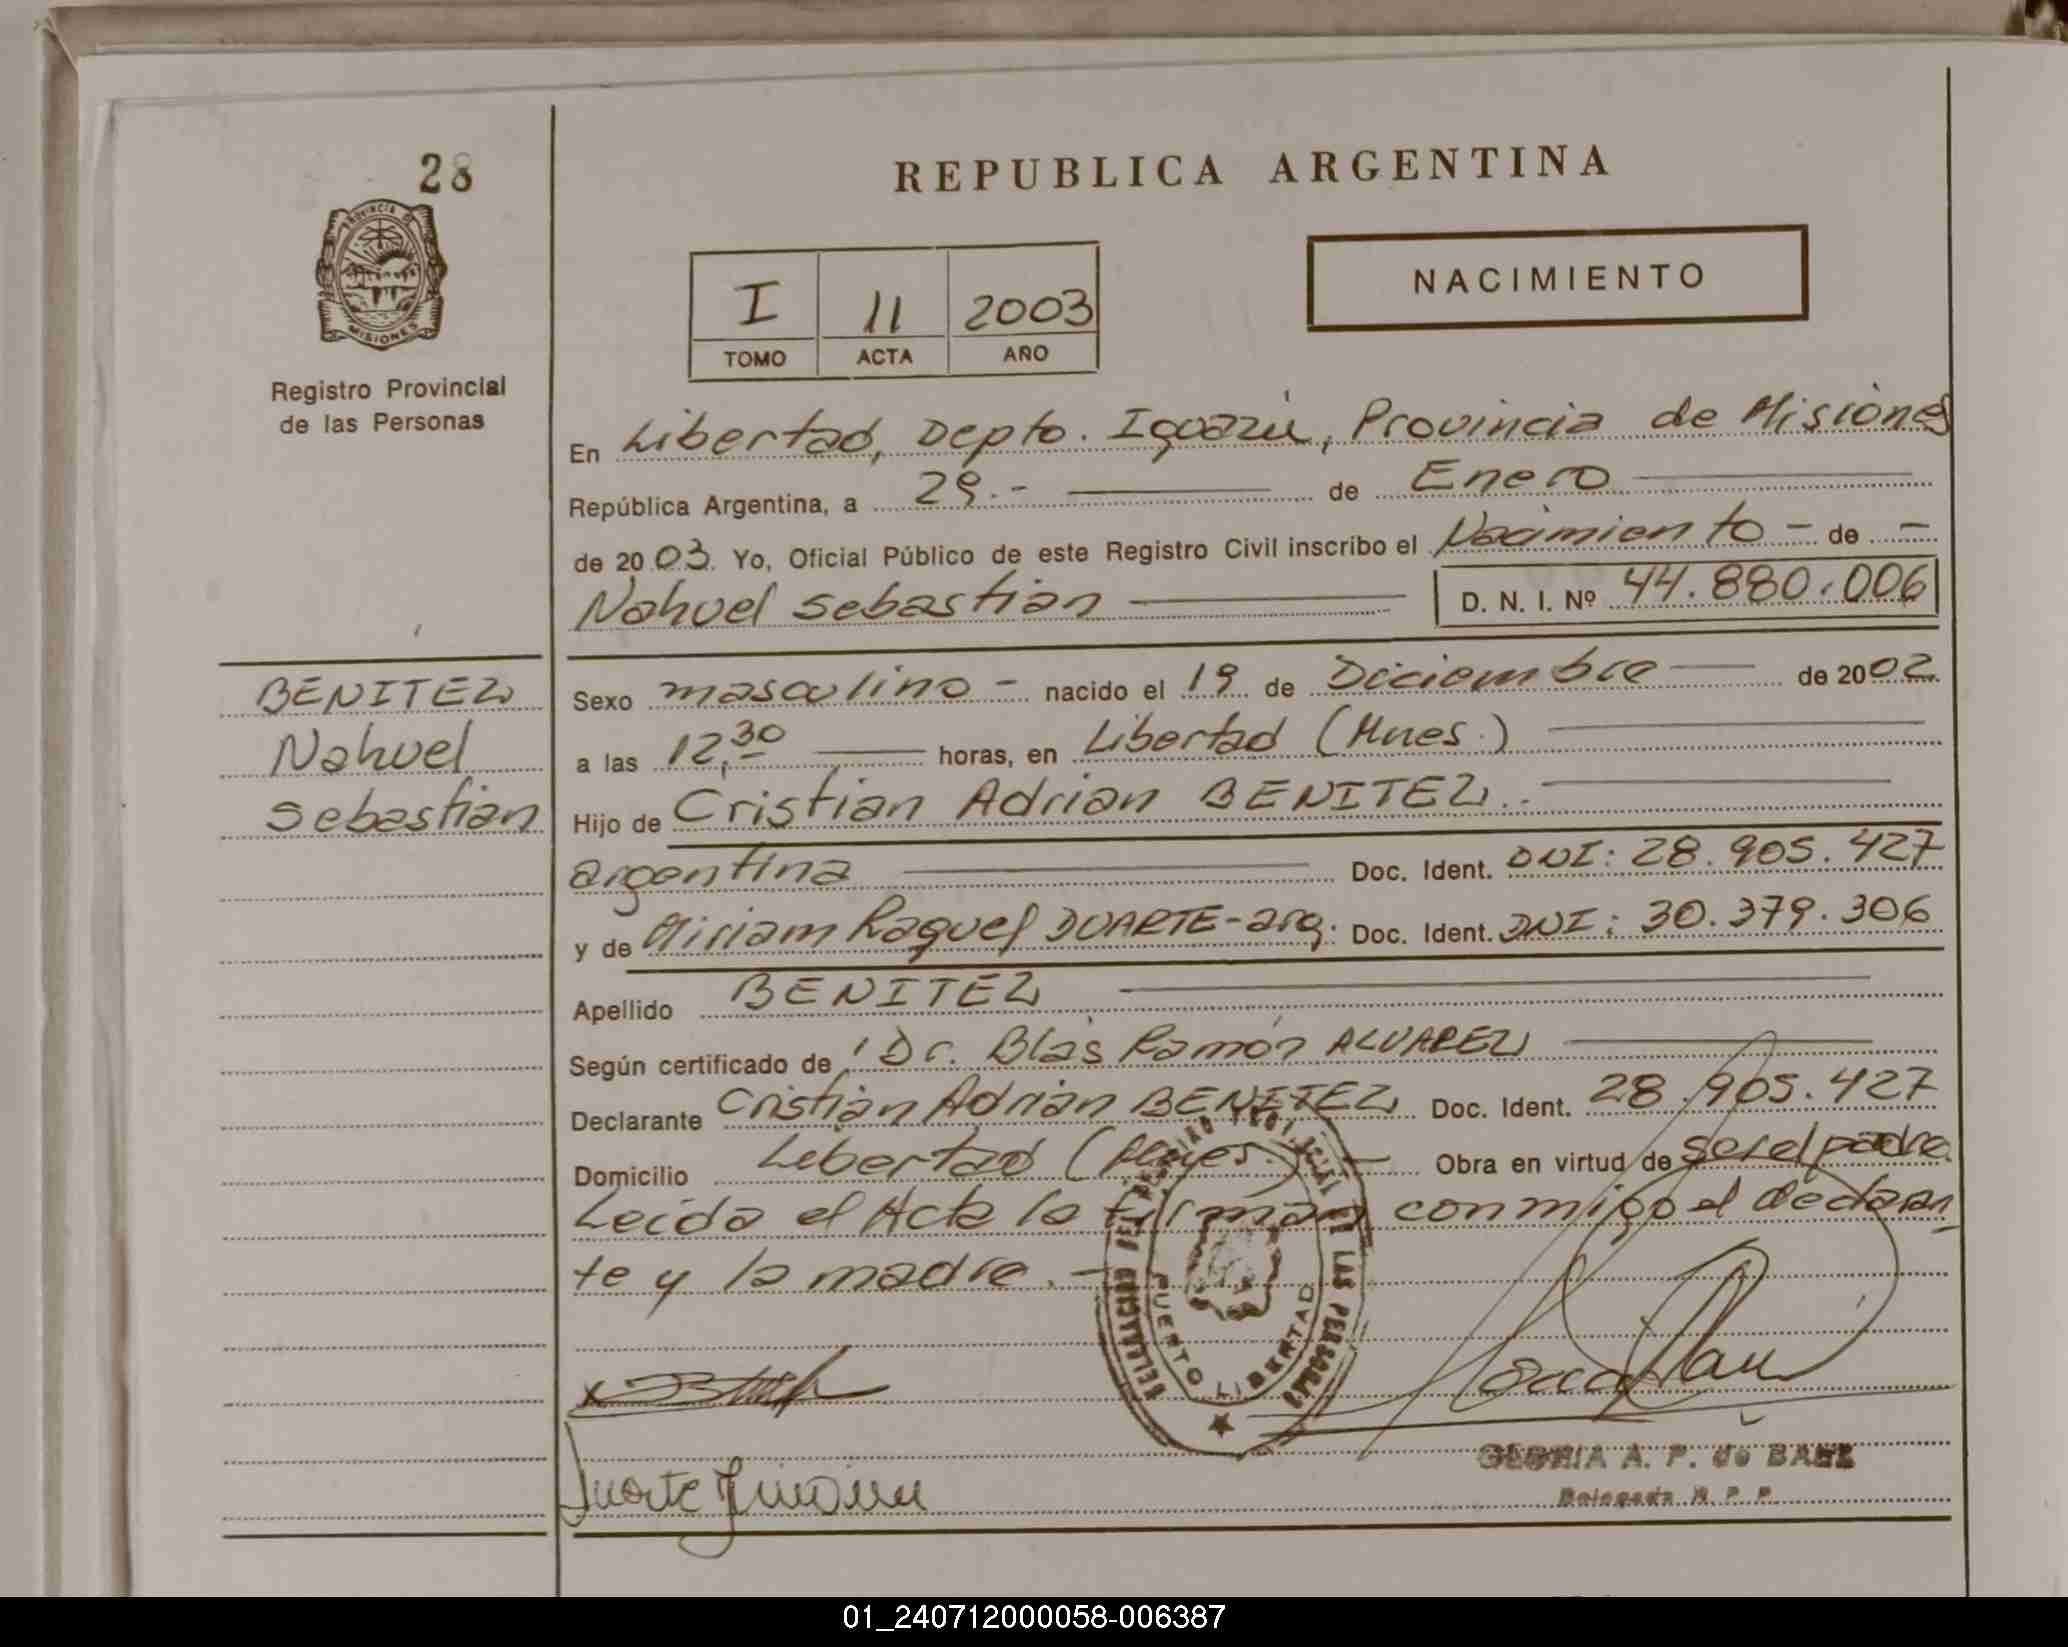 28
REPUBLICA ARGENTINA
NACIMIENTO
I 11 2003
TOMO ACTA AÑO
PROVINCIA DE
MISIONES
Registro Provincial
de las Personas
En Libertad, Depto. Iguazú, Provincia de Misiones
República Argentina, a 29.- de Enero
de 2003. Yo, Oficial Público de este Registro Civil inscribo el Nacimiento - de -
Nahuel Sebastian D. N. I. Nº 44.880.006
BENITEZ
Nahuel
Sebastian
Sexo masculino - nacido el 19 de Diciembre de 2002.
a las 12,30 horas, en Libertad (Mnes.)
Hijo de Cristian Adrian BENITEZ.-
argentina Doc. Ident. DNI: 28.905.427
y de Miriam Raquel DUARTE-arg. Doc. Ident. DNI: 30.379.306
Apellido BENITEZ
Según certificado de Dr. Blas Ramón ALVAREZ
Declarante Cristian Adrian BENITEZ Doc. Ident. 28.905.427
Domicilio Libertad (Mnes.) - Obra en virtud de ser el padre.
Leida el Acta la firman conmigo el declaran
te y la madre.-
PUERTO LIBERTAD
DE LAS PERSONAS
Duarte Miriam
GLORIA A. P. de BAEZ
Delegada R. P. P.
01_240712000058-006387